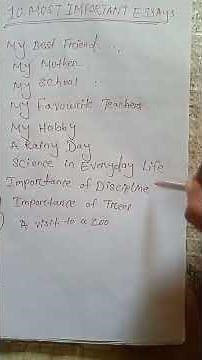 10 MOST IMPORTANT ESSAYS
My Best Friend...
My Mother
My School
My Favourite Teachers
My Hobby
A Rainy Day
Science in Everyday Life
Importance of Discipline
Importance of Trees
A visit to a Zoo